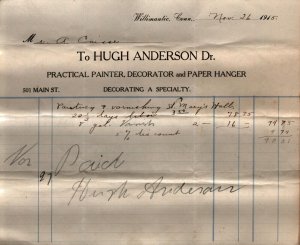 Willimantic, Conn. Nov 26 1915.
Mr. A
To HUGH ANDERSON Dr.
PRACTICAL PAINTER, DECORATOR and PAPER HANGER
501 MAIN ST. DECORATING A SPECIALTY.
Painting & varnishing St Mary's Hall
20½ days labor 3 50
8 gal. a 16
5 % discount
Nov Paid
27 Hugh Anderson